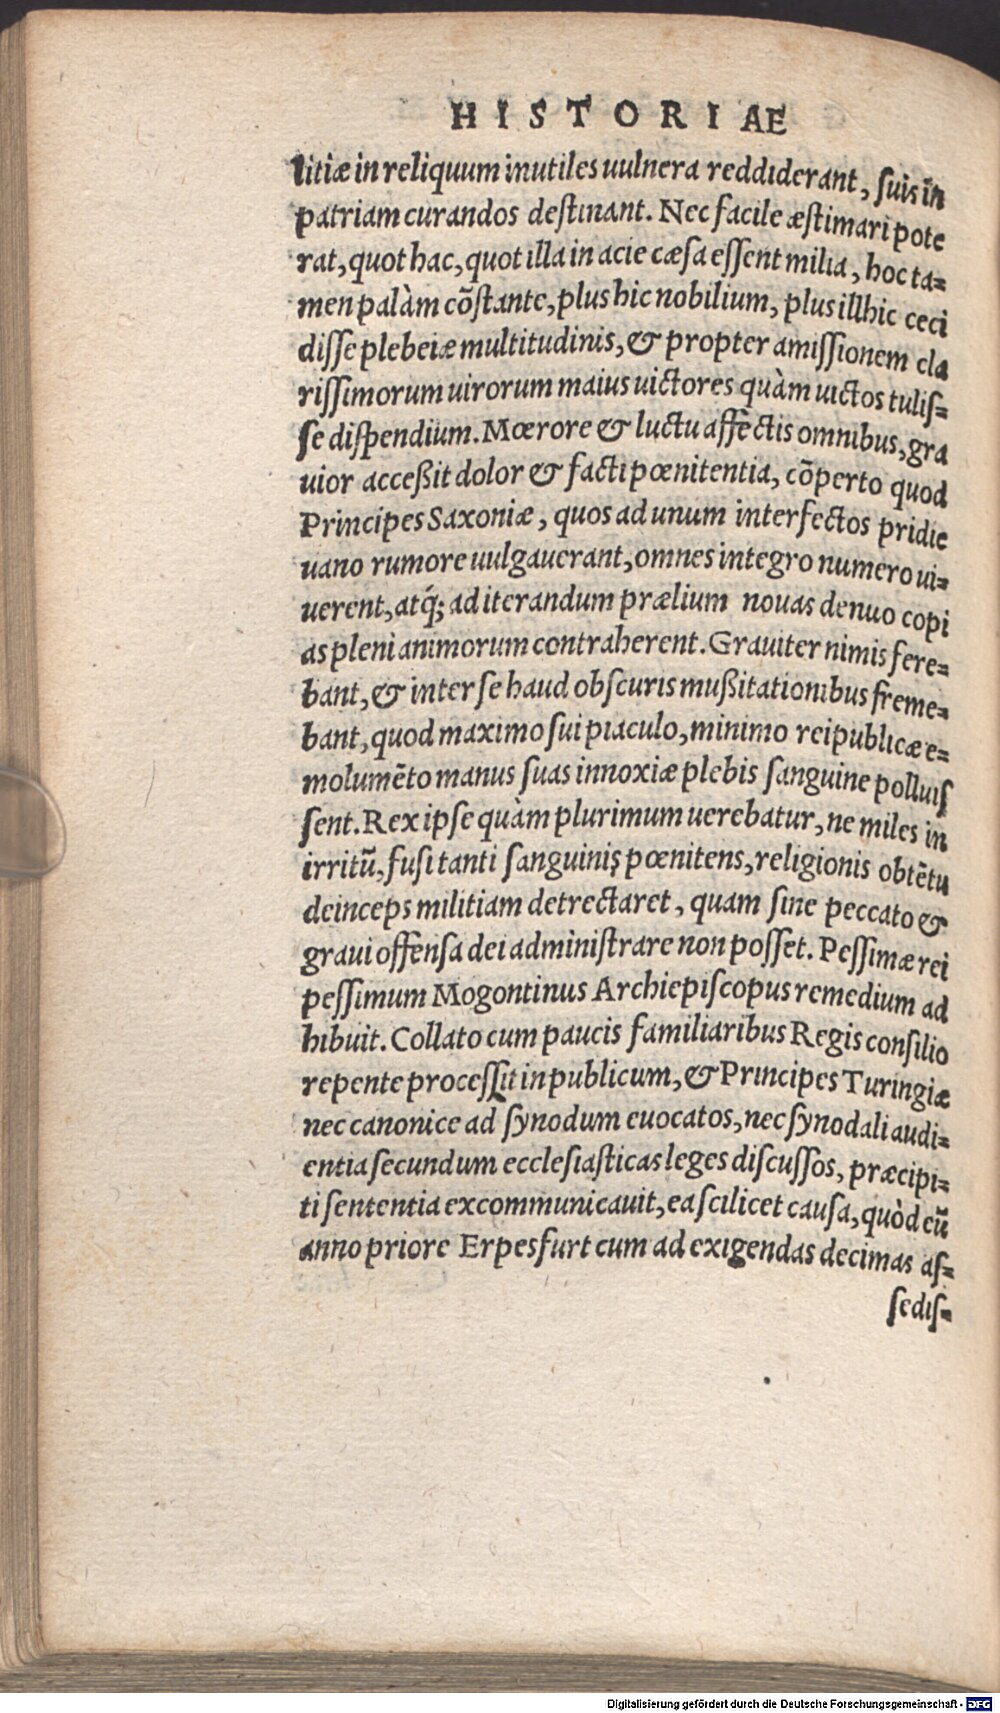 HISTORIAE
litiæ in reliquum inutiles uulnera reddiderant, suis in
patriam curandos destinant. Nec facile æstimari pote
rat, quot hac, quot illa in acie cæsa essent milia, hoc ta-
men palàm cōstante, plus hic nobilium, plus illhic ceci
disse plebeiæ multitudinis, & propter amissionem cla
rissimorum uirorum maius uictores quàm uictos tulis-
se dispendium. Mœrore & luctu affectis omnibus, gra
uior acceßit dolor & facti pœnitentia, cōperto quod
Principes Saxoniæ, quos ad unum interfectos pridie
uano rumore uulgauerant, omnes integro numero ui-
uerent, atq́; ad iterandum prælium nouas denuo copi
as pleni animorum contraherent. Grauiter nimis fere-
bant, & inter se haud obscuris mußitationibus freme-
bant, quod maximo sui piaculo, minimo reipublicæ e-
molumēto manus suas innoxiæ plebis sanguine polluis
sent. Rex ipse quàm plurimum uerebatur, ne miles in
irritū, fusi tanti sanguinis pœnitens, religionis obtētu
deinceps militiam detrectaret, quam sine peccato &
graui offensa dei administrare non posset. Pessimæ rei
pessimum Mogontinus Archiepiscopus remedium ad
hibuit. Collato cum paucis familiaribus Regis consilio
repente processit in publicum, & Principes Turingiæ
nec canonice ad synodum euocatos, nec synodali audi-
entia secundum ecclesiasticas leges discussos, præcipi-
ti sententia excommunicauit, ea scilicet causa, quòd eū
anno priore Erpesfurt cum ad exigendas decimas as-
sedis-
Digitalisierung gefördert durch die Deutsche Forschungsgemeinschaft - DFG